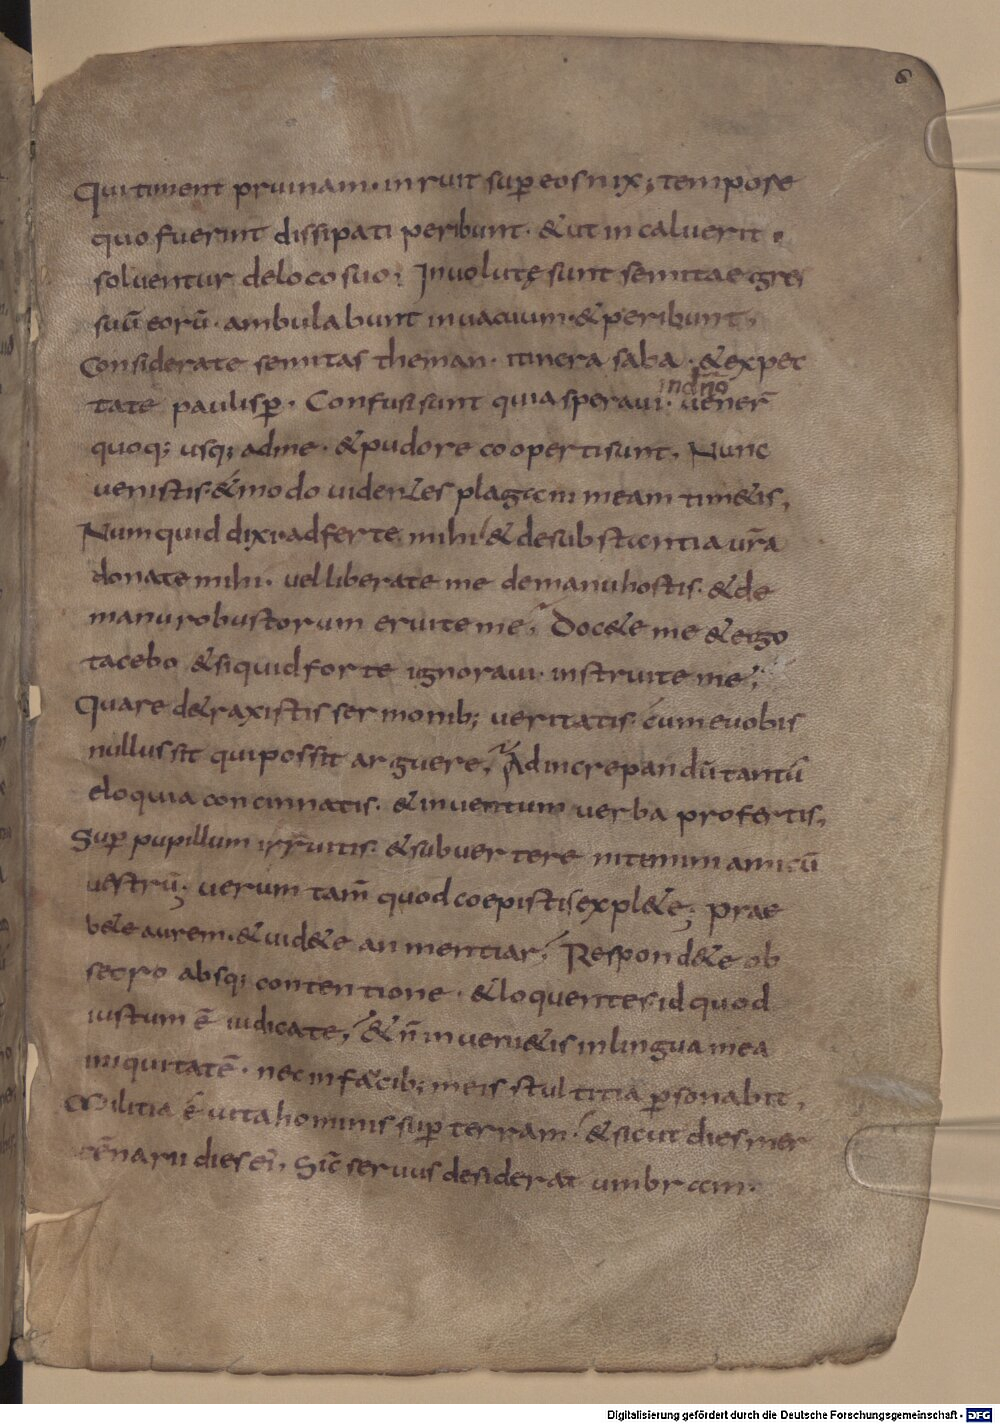 6
Qui timent pruinam· inruit sup̄ eos nix; tempore
quo fuerint dissipati peribunt· & ut incaluerit·
soluentur de loco suo; Inuolutę sunt semitae gres
suū eorū· ambulabunt in uacuum· & peribunt,
Considerate semitas theman· itinera saba· & expec
in dn̄o
tate paulisp̄· Confusi sunt quia speraui· uener̄
quoq; usq; ad me· & pudore cooperti sunt. Nunc
uenistis· & modo uidentes plagam meam timetis,
Numquid dixi adferte mihi & de substantia ur̄a
donate mihi· uel liberate me de manu hostis· & de
manu robustorum eruite me, Docete me & ego
tacebo & si quid forte ignoraui· instruite me;
Quare detraxistis sermonib; ueritatis· cum e uobis
nullus sit qui possit arguere, Ad increpandū tantū
eloquia concinnatis· & in uentum uerba profertis,
Sup̄ pupillum irruitis· & subuertere nitimini amicū
uestrū; uerum tam̄ quod coepistis explete; prae
bete aurem· & uidete an mentiar, Respondete ob
secro absq; contentione· & loquentes id quod
iustum ē iudicate, & n̄ inuenietis in lingua mea
iniquitatē· nec in faucib; meis stultitia p̄sonabit,
Militia ē uita hominis sup̄ terram· & sicut dies mer
cēnarii dies ei', Sic̄ seruus desiderat umbram·
Digitalisierung gefördert durch die Deutsche Forschungsgemeinschaft - DFG